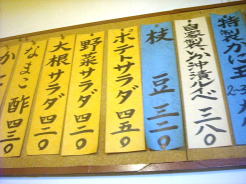 特製かに玉
2-3
自家製いか沖漬ルイベ 三八〇
枝豆 三二〇
ポテトサラダ 四五〇
野菜サラダ 四二〇
大根サラダ 四二〇
なまこ酢 四三〇
か